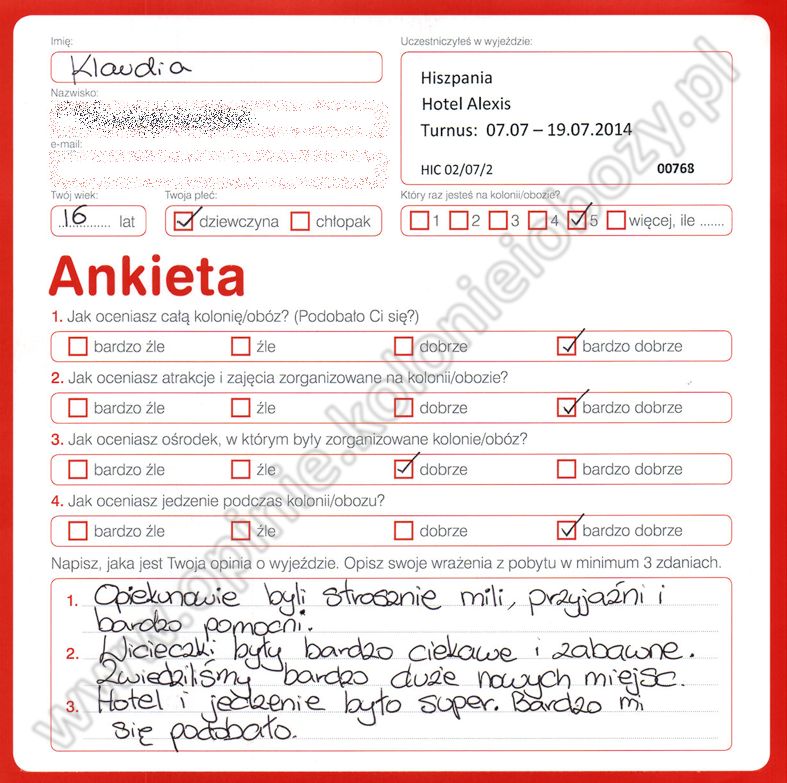 Imię:
Klaudia
Uczestniczyłeś w wyjeździe:
Hiszpania
Hotel Alexis
Turnus: 07.07 – 19.07.2014
HIC 02/07/2 00768
Nazwisko:
e-mail:
Twój wiek:
16 lat
Twoja płeć:
dziewczyna chłopak
Który raz jesteś na kolonii/obozie?
1 2 3 4 5 więcej, ile .......
Ankieta
1. Jak oceniasz całą kolonię/obóz? (Podobało Ci się?)
bardzo źle źle dobrze bardzo dobrze
2. Jak oceniasz atrakcje i zajęcia zorganizowane na kolonii/obozie?
bardzo źle źle dobrze bardzo dobrze
3. Jak oceniasz ośrodek, w którym były zorganizowane kolonie/obóz?
bardzo źle źle dobrze bardzo dobrze
4. Jak oceniasz jedzenie podczas kolonii/obozu?
bardzo źle źle dobrze bardzo dobrze
Napisz, jaka jest Twoja opinia o wyjeździe. Opisz swoje wrażenia z pobytu w minimum 3 zdaniach.
1. Opiekunowie byli strasznie mili, przyjaźni i
bardzo pomocni.
2. Wicieczki były bardzo ciekawe i zabawne.
Zwiedziliśmy bardzo duże nowych miejsc.
3. Hotel i jedzenie było super. Bardzo mi
się podobało.
www.opinie.kolonieiobozy.pl